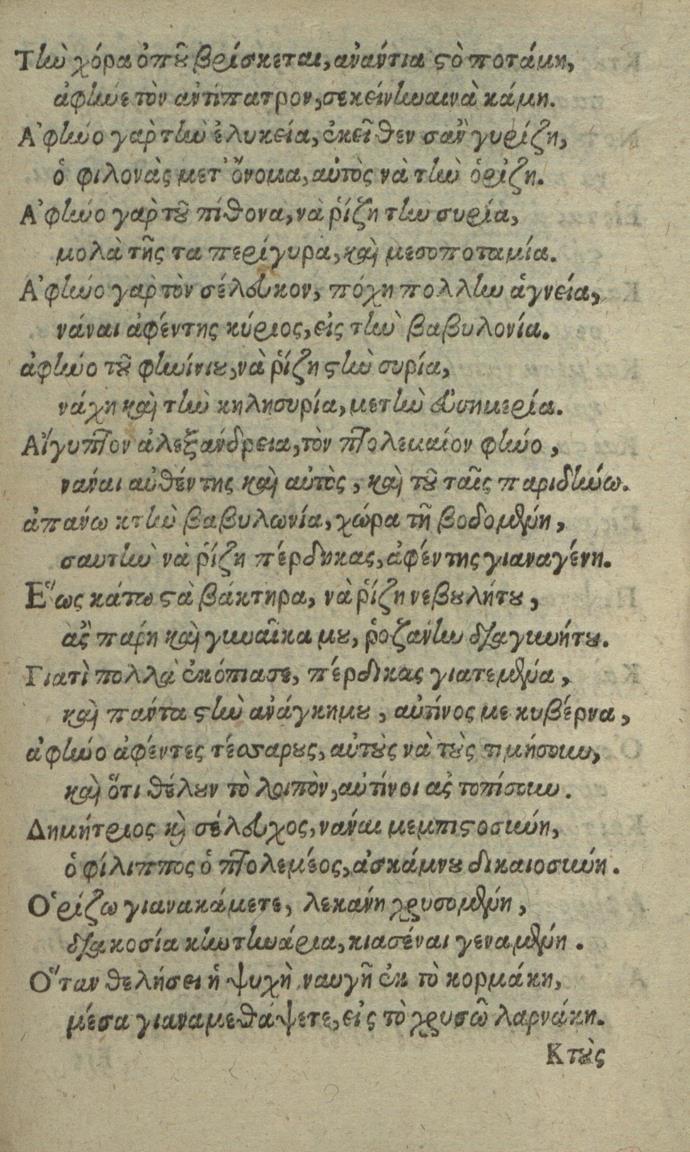 Τὴν χόρα ὁποῦ βρίσκεται, ἀνάντια στὸ ποτάμη,
ἀφήνε τὸν ἀντίπατρον, σεκείνηναινὰ κάμη.
Ἀφήνο γαρ τὴν ἐλυκεία, ἐκεῖθεν σαν γυρίζη,
ὁ φιλονὰς μετ' ὄνομα, αὐτὸς νὰ τὴν ὁρίζη.
Ἀφήνο γαρ τοῦ πίθονα, νὰ ῥίζη τὴν συρία,
μολὰ τῆς τα περίγυρα, καὶ μεσοποταμία.
Ἀφήνο γαρ τὸν σέλευκον, πόχη πολλὴν ἁγνεία,
νάναι ἀφέντης κύριος, εἰς τὴν βαβυλονία.
ἀφήνο τοῦ φωίνιου, νὰ ῥίζη στὴν συρία,
νάχη καὶ τὴν κηλησυρία, μετὴν εὐσημερία.
Αἴγυπτον ἀλεξάνδρεια, τὸν πτολεμαίον φήνο,
νάναι αὐθέντης καὶ αὐτὸς, καὶ τοῦ ταῖς παριδήνω.
ἀπάνω κτὴν βαβυλωνία, χώρα τῆ βοδομένη,
σαυτὴν νὰ ῥίζη πέρδηκας, ἀφέντης γιαναγένη.
Ἕως κάπω στὰ βάκτηρα, νὰ ῥίζη νεβουλήτου,
ἂς παρη καὶ γυναῖκα μου, ῥοζανὴν διαγινήτου.
Γιατὶ πολλὰ ἐκόπιασε, πέρδικας γιατεμένα,
καὶ παντα στὴν ἀνάγκημου, αὐτῆνος με κυβέρνα,
ἀφήνο ἀφέντες τέσσαρους, αὐτοὺς νὰ τοὺς τιμήσουν,
καὶ ὅτι θέλουν τὸ λοιπὸν, αὐτίνοι ἂς τοπίσουν.
Δημήτριος κὴ σέλευχος, νάναι μεμπιστοσύνη,
ὁ φίλιππος ὁ πτολεμέος, ἀσκάμνου δικαιοσύνη.
Ὁρίζω γιανακάμετε, λεκανη χρυσομένη,
διακοσία κηντηνάρια, κιασέναι γεναμένη.
Ὅταν θελήσει ἡ ψυχὴ ναυγῆ ἐκ τὸ κορμάκη,
μέσα γιαναμεθάψετε, εἰς τὸ χρυσῶ λαρνάκη.
Κτοὺς